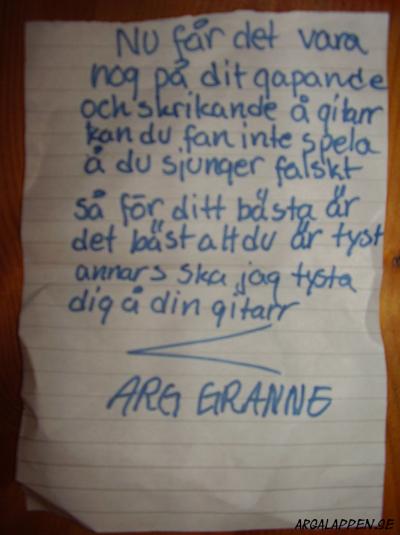 NU får det vara
nog på dit gapande
och skrikande å gitarr
kan du fan inte spela
å du sjunger falskt
så för ditt bästa är
det bäst att du är tyst
annars ska jag tysta
dig å din gitarr
ARG GRANNE
ARGALAPPEN.SE